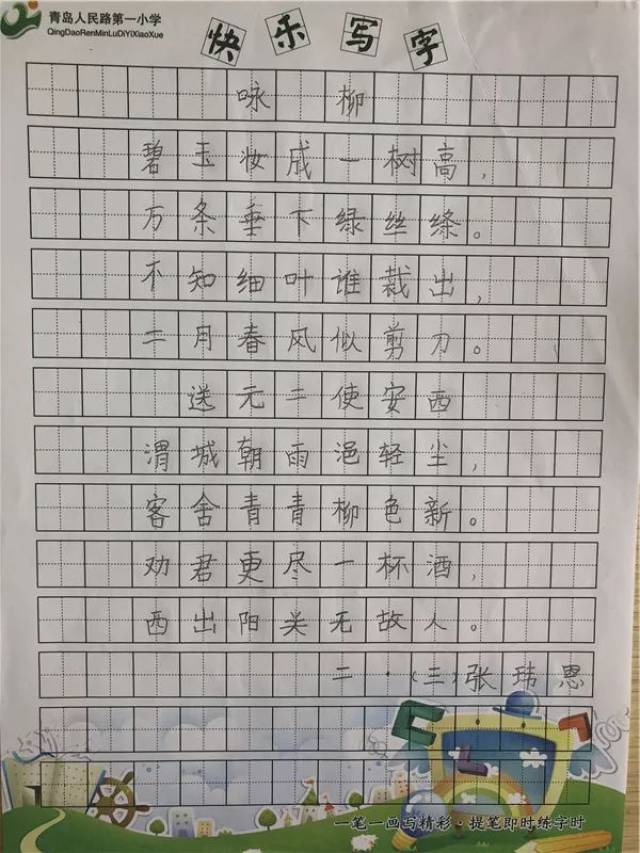 青岛人民路第一小学
QingDaoRenMinLuDiYiXiaoXue
快乐写字
咏柳
碧玉妆成一树高,
万条垂下绿丝绦。
不知细叶谁裁出,
二月春风似剪刀。
送元二使安西
渭城朝雨浥轻尘,
客舍青青柳色新。
劝君更尽一杯酒,
西出阳关无故人。
二·(三)张玮恩
一笔一画写精彩·提笔即时练字时